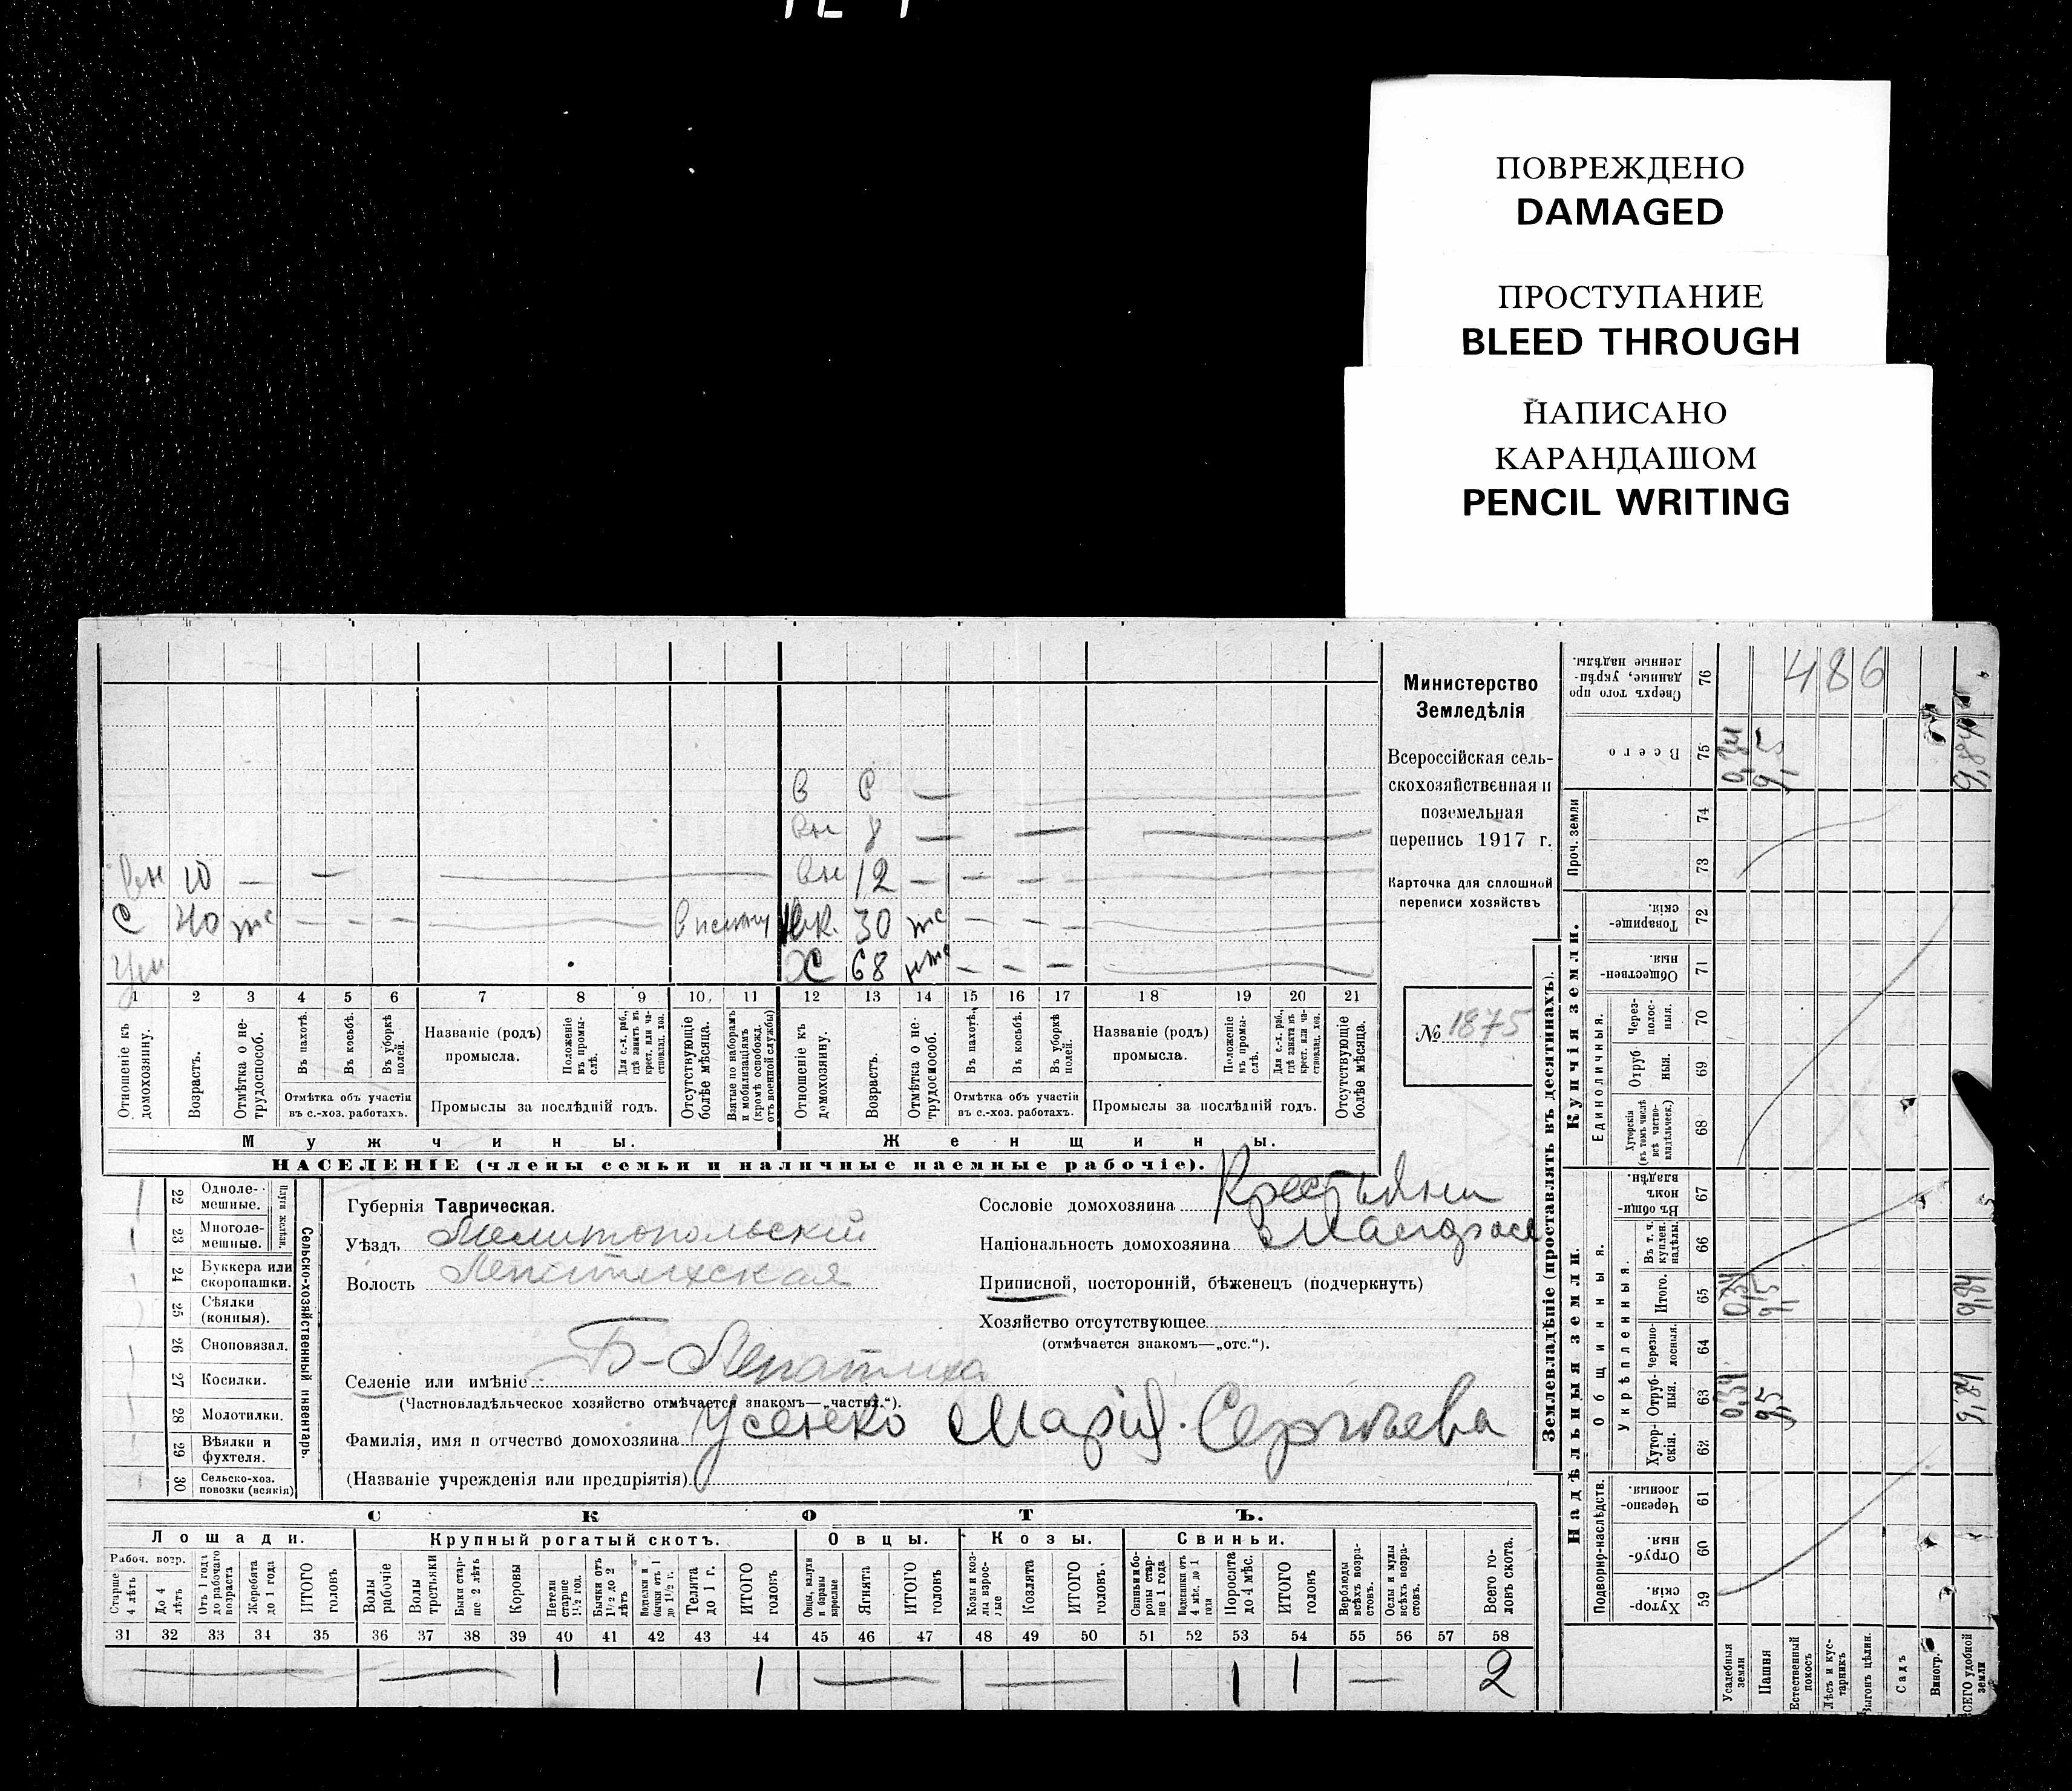 ПОВРЕЖДЕНО
DAMAGED
ПРОСТУПАНИЕ
BLEED THROUGH
НАПИСАНО
КАРАНДАШОМ
PENCIL WRITING
Министерство
Земледѣлія
Всероссійская сель-
скохозяйственная и
поземельная
перепись 1917 г.
Карточка для сплошной
переписи хозяйствъ
№ 1875
В —
Вн 8 —
Вн 10 — — Вн 12 — — —
С 40 — — — 30
ХС 68 — — —
1 2 3 4 5 6 7 8 9 10 11 12 13 14 15 16 17 18 19 20 21
Отношеніе къ домохозяину.
Возрастъ.
Отмѣтка о не-трудоспособ.
Въ пахотѣ.
Въ косьбѣ.
Въ уборкѣ полей.
Отмѣтка объ участіи
въ с.-хоз. работахъ.
Названіе (родъ)
промысла.
Положеніе въ промы-слѣ.
Для с.-х. раб., гдѣ занятъ въ крест. или ча-стновлад. хоз.
Промыслы за послѣдній годъ.
Отсутствующіе болѣе мѣсяца.
Взятые по наборамъ и мобилизаціямъ (кромѣ освобожд. отъ военной службы)
Отношеніе къ домохозяину.
Возрастъ.
Отмѣтка о не-трудоспособ.
Въ пахотѣ.
Въ косьбѣ.
Въ уборкѣ полей.
Отмѣтка объ участіи
въ с.-хоз. работахъ.
Названіе (родъ)
промысла.
Положеніе въ промы-слѣ.
Для с.-х. раб., гдѣ занята въ крест. или ча-стновлад. хоз.
Промыслы за послѣдній годъ.
Отсутствующіе болѣе мѣсяца.
Мужчины. Женщины.
НАСЕЛЕНІЕ (члены семьи и наличные наемные рабочіе).
Сельско-хозяйственный инвентарь.
Плуги желѣзн.
22 Одноле-мешные.
23 Многоле-мешные.
24 Буккера или скоропашки.
25 Сѣялки (конныя).
26 Сноповязал.
27 Косилки.
28 Молотилки.
29 Вѣялки и фухтеля.
30 Сельско-хоз. повозки (всякія)
Губернія Таврическая.
Уѣздъ Мелитопольскій
Волость Лепатихская
Селеніе или имѣніе Б-Лепатиха
(Частновладѣльческое хозяйство отмѣчается знакомъ—„частвл.“).
Фамилія, имя и отчество домохозяина Усенко Марія Сергѣева
(Названіе учрежденія или предпріятія)
Сословіе домохозяина Крестьяни
Національность домохозяина
Приписной, посторонній, бѣженецъ (подчеркнуть)
Хозяйство отсутствующее
(отмѣчается знакомъ—„отс.“).
СКОТЪ.
Лошади. Крупный рогатый скотъ. Овцы. Козы. Свиньи.
Рабоч. возр.
Старше 4 лѣтъ
До 4 лѣтъ
Отъ 1 года до рабочаго возраста
Жеребята до 1 года
ИТОГО головъ
Волы рабочіе
Волы третьяки
Быки стар-ше 2 лѣтъ
Коровы
Нетели старше 1½ год.
Бычки отъ 1½ до 2 лѣтъ
Телята до 1 г.
ИТОГО головъ
Овцы, валухи и бараны взрослые
Ягнята
ИТОГО головъ
Козы и коз-лы взрос-лые
Козлята
ИТОГО головъ
Свиньи и бо-ровы стар-ше 1 года
Подсвинки отъ 4 мѣс. до 1 года
Поросята до 4 мѣс.
ИТОГО головъ
Верблюды всѣхъ возра-стовъ.
Ослы и мулы всѣхъ возра-стовъ.
Всего го-ловъ скота.
31 32 33 34 35 36 37 38 39 40 41 42 43 44 45 46 47 48 49 50 51 52 53 54 55 56 57 58
1 1 1 1 — 2
Землевладѣніе (проставлять въ десятинахъ).
Купчія земли.
Надѣльныя земли.
Проч. земли
Единоличныя.
Общинныя.
Укрѣпленныя.
Подворно-наслѣдств.
76 Сверхъ того про данные, укрѣп-ленные надѣлы.
75 Всего
74
73
72 Товарище-скія.
71 Обществен-ныя.
70 Через-полос-ныя.
69 Отруб ныя.
68 Хуторскія (въ томъ числѣ всѣ частно-владѣльческ.)
67 Въ общи-номъ владѣн.
66 Въ т. ч. куплен. надѣлы.
65 Итого.
64 Черезпо-лосныя.
63 Отруб-ныя.
62 Хутор-скія.
61 Черезпо-лосныя.
60 Отруб-ныя
59 Хутор-скія.
486
0,34 9,5 9,84
0,34 9,5 9,84
Усадебныя земли
Пашня
Естественный покосъ
Лѣсъ и кус-тарникъ
Выгонъ цѣлин.
Садъ
Виногр.
ВСЕГО удобной земли